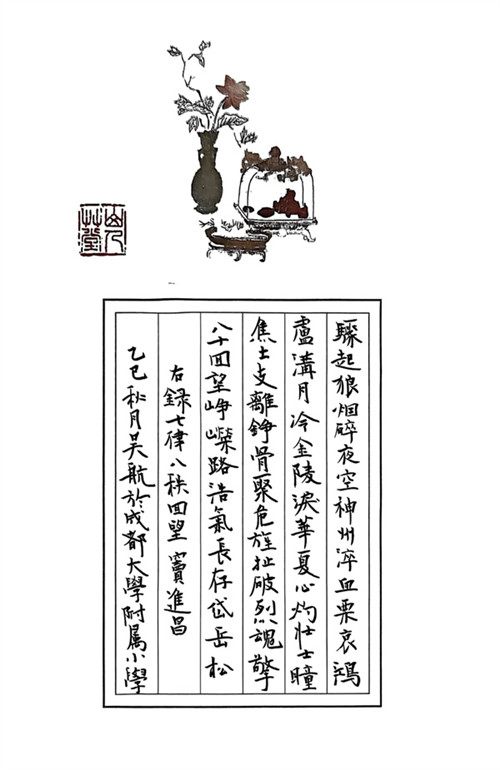 驟起狼烟碎夜空神州淬血栗哀鴻
盧溝月冷金陵淚華夏心灼壯士瞳
焦土支離錚骨聚危旌扯破烈魂擎
八十回望崢嶸路浩氣長存岱岳松
右録七律八秩回望 竇進昌
乙巳秋月吳航於成都大學附属小學